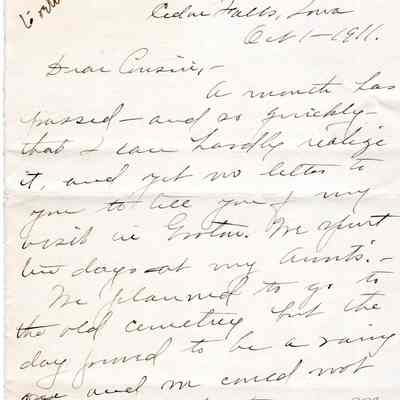 Cedar Falls, Iowa
Oct 1 - 1911.
Dear Cousin,-
A month has
passed - and so quickly -
that I can hardly realize
it, and yet no letter to
you to tell you of my
visit in Groton. We spent
two days at my Aunt's. -
We planned to go to
the old cemetrey but the
day proved to be a rainy
and we could not